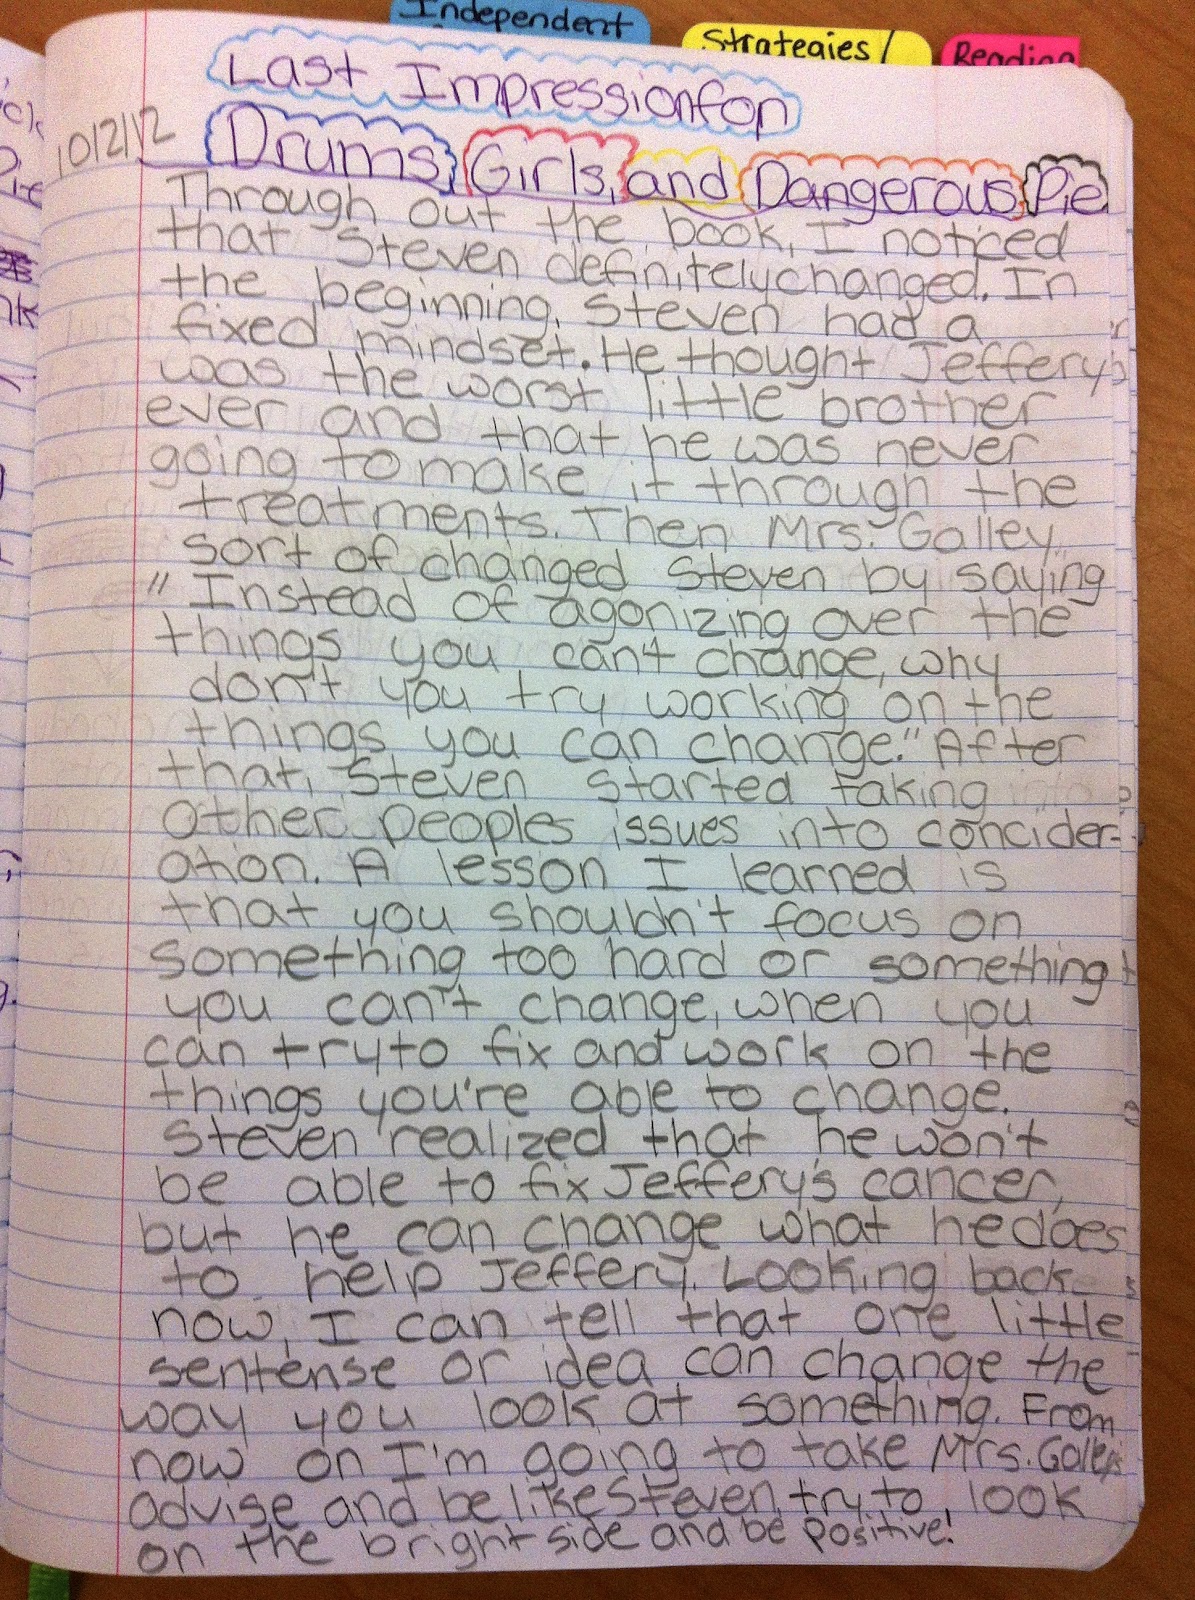 Independent
Strategies/
Reading
Last Impression for
10/2/12
Drums, Girls, and Dangerous Pie
Through out the book, I noticed
that Steven definitely changed. In
the beginning, Steven had a
fixed mindset. He thought Jeffery
was the worst little brother
ever and that he was never
going to make it through the
treatments. Then Mrs. Galley
sort of changed Steven by saying
"Instead of agonizing over the
things you can't change, why
don't you try working on the
things you can change." After
that, Steven started taking
other peoples issues into concider-
ation. A lesson I learned is
that you shouldn't focus on
something too hard or something
you can't change, when you
can try to fix and work on the
things you're able to change.
Steven realized that he won't
be able to fix Jeffery's cancer,
but he can change what he does
to help Jeffery. Looking back
now, I can tell that one little
sentense or idea can change the
way you look at something. From
now on I'm going to take Mrs. Galley's
advise and be like Steven, try to look
on the bright side and be positive!